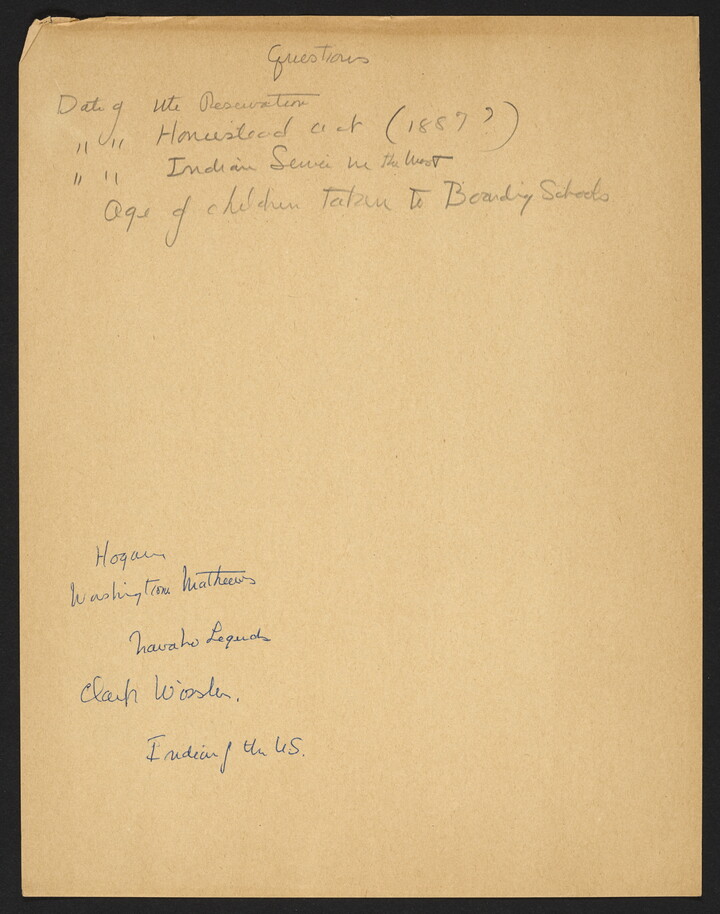 Questions
Date of Ute Reservation
" " Homestead act (1887?)
" " Indian Service in the West
Age of children taken to Boarding Schools
Hogans
Washington Mathews
Navaho Legends
Clark Wissler.
Indian of the U.S.